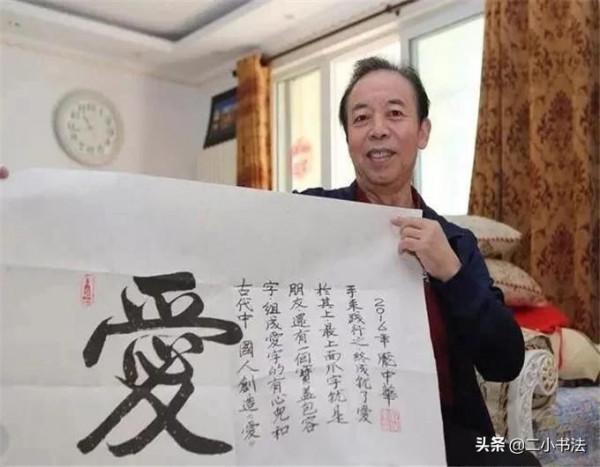 愛
古代中國人創造之愛
字組成愛字的有心兒和
朋友還有一個寶蓋包容
於其上最上面爪字就是
手來踐行之終成就了愛
2016年龐中華
头条@二小书法